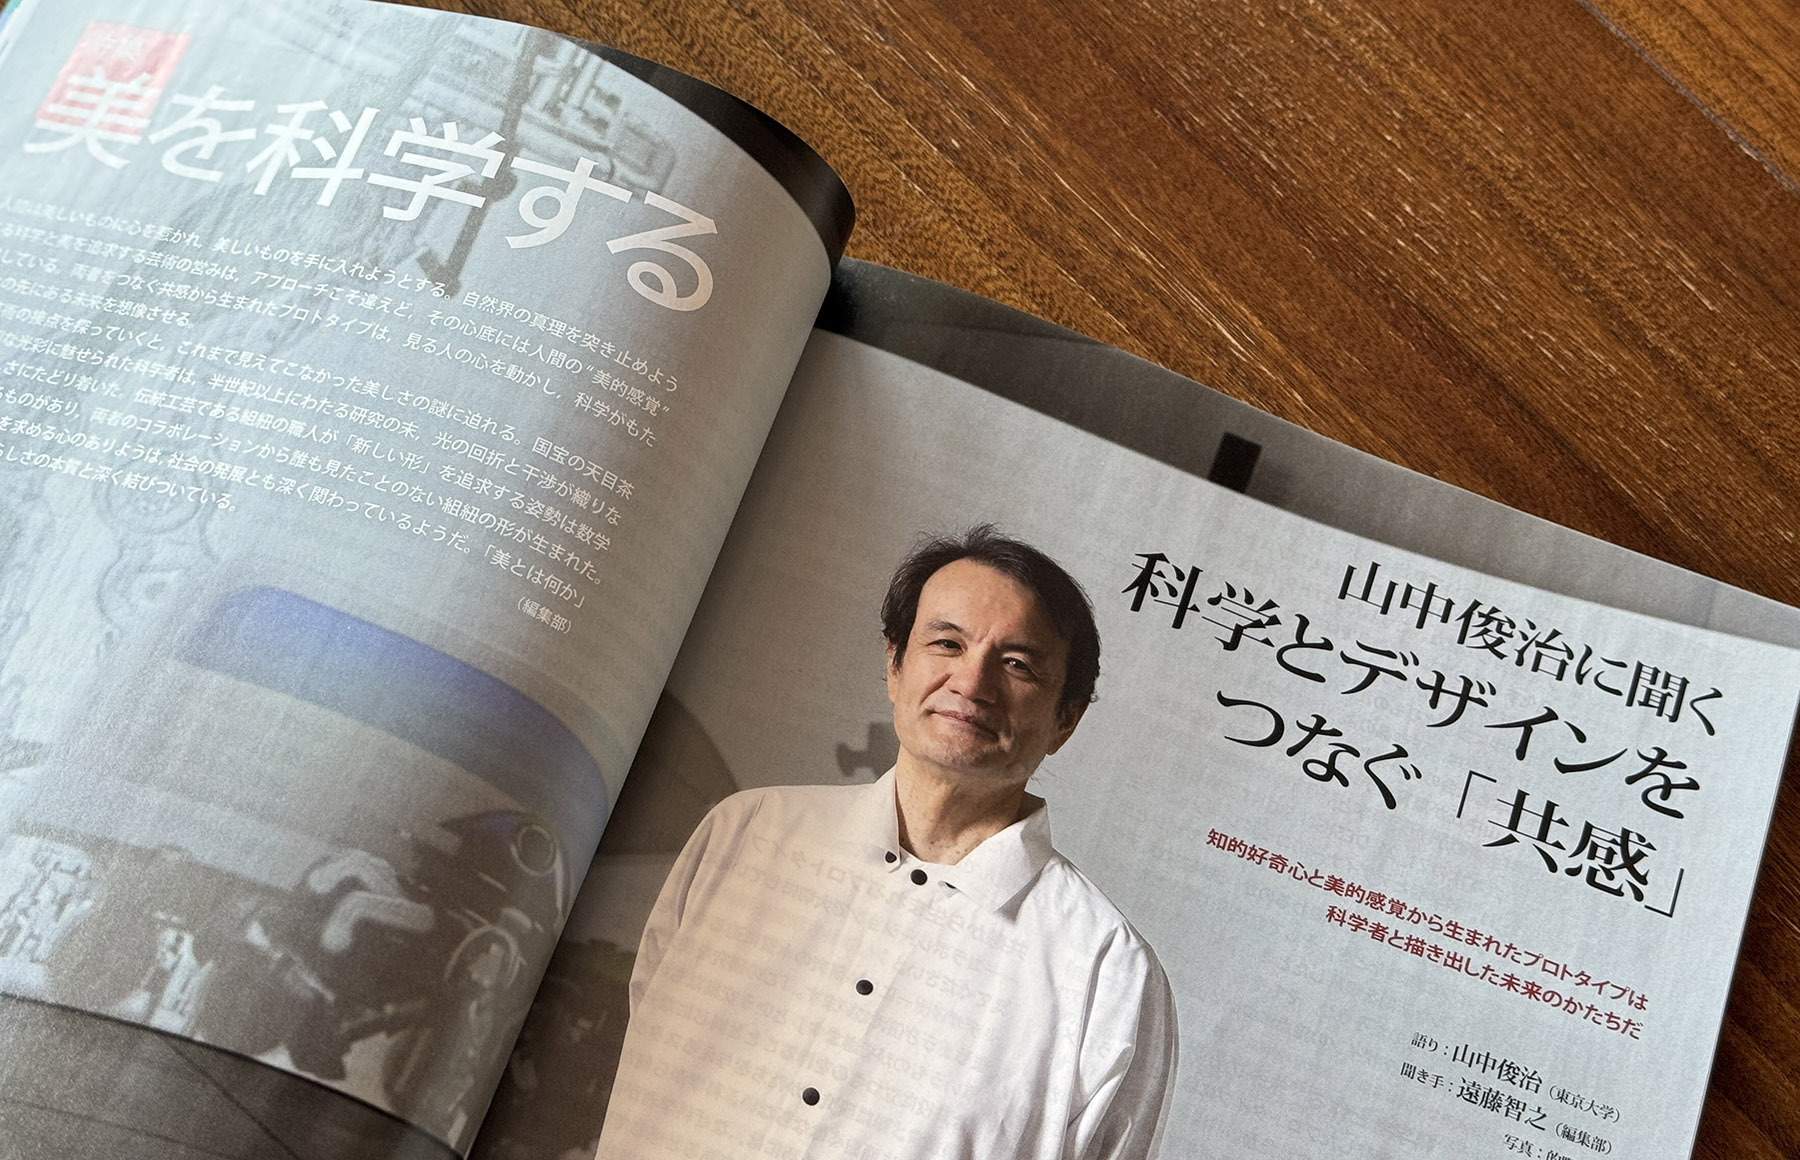 特集
美を科学する
人間は美しいものに心を惹かれ，美しいものを手に入れようとする。自然界の真理を突き止めよう
る科学と美を追求する芸術の営みは，アプローチこそ違えど，その心底には人間の“美的感覚”
している。両者をつなぐ共感から生まれたプロトタイプは，見る人の心を動かし，科学がもた
の先にある未来を想像させる。
術の接点を探っていくと，これまで見えてこなかった美しさの謎に迫れる。国宝の天目茶
な光彩に魅せられた科学者は，半世紀以上にわたる研究の末，光の回折と干渉が織りな
さにたどり着いた。伝統工芸である組紐の職人が「新しい形」を追求する姿勢は数学
るものがあり，両者のコラボレーションから誰も見たことのない組紐の形が生まれた。
を求める心のありようは，社会の発展とも深く関わっているようだ。「美とは何か」
らしさの本質と深く結びついている。
（編集部）
山中俊治に聞く
科学とデザインを
つなぐ「共感」
知的好奇心と美的感覚から生まれたプロトタイプは
科学者と描き出した未来のかたちだ
語り：山中俊治（東京大学）
聞き手：遠藤智之（編集部）
写真：的